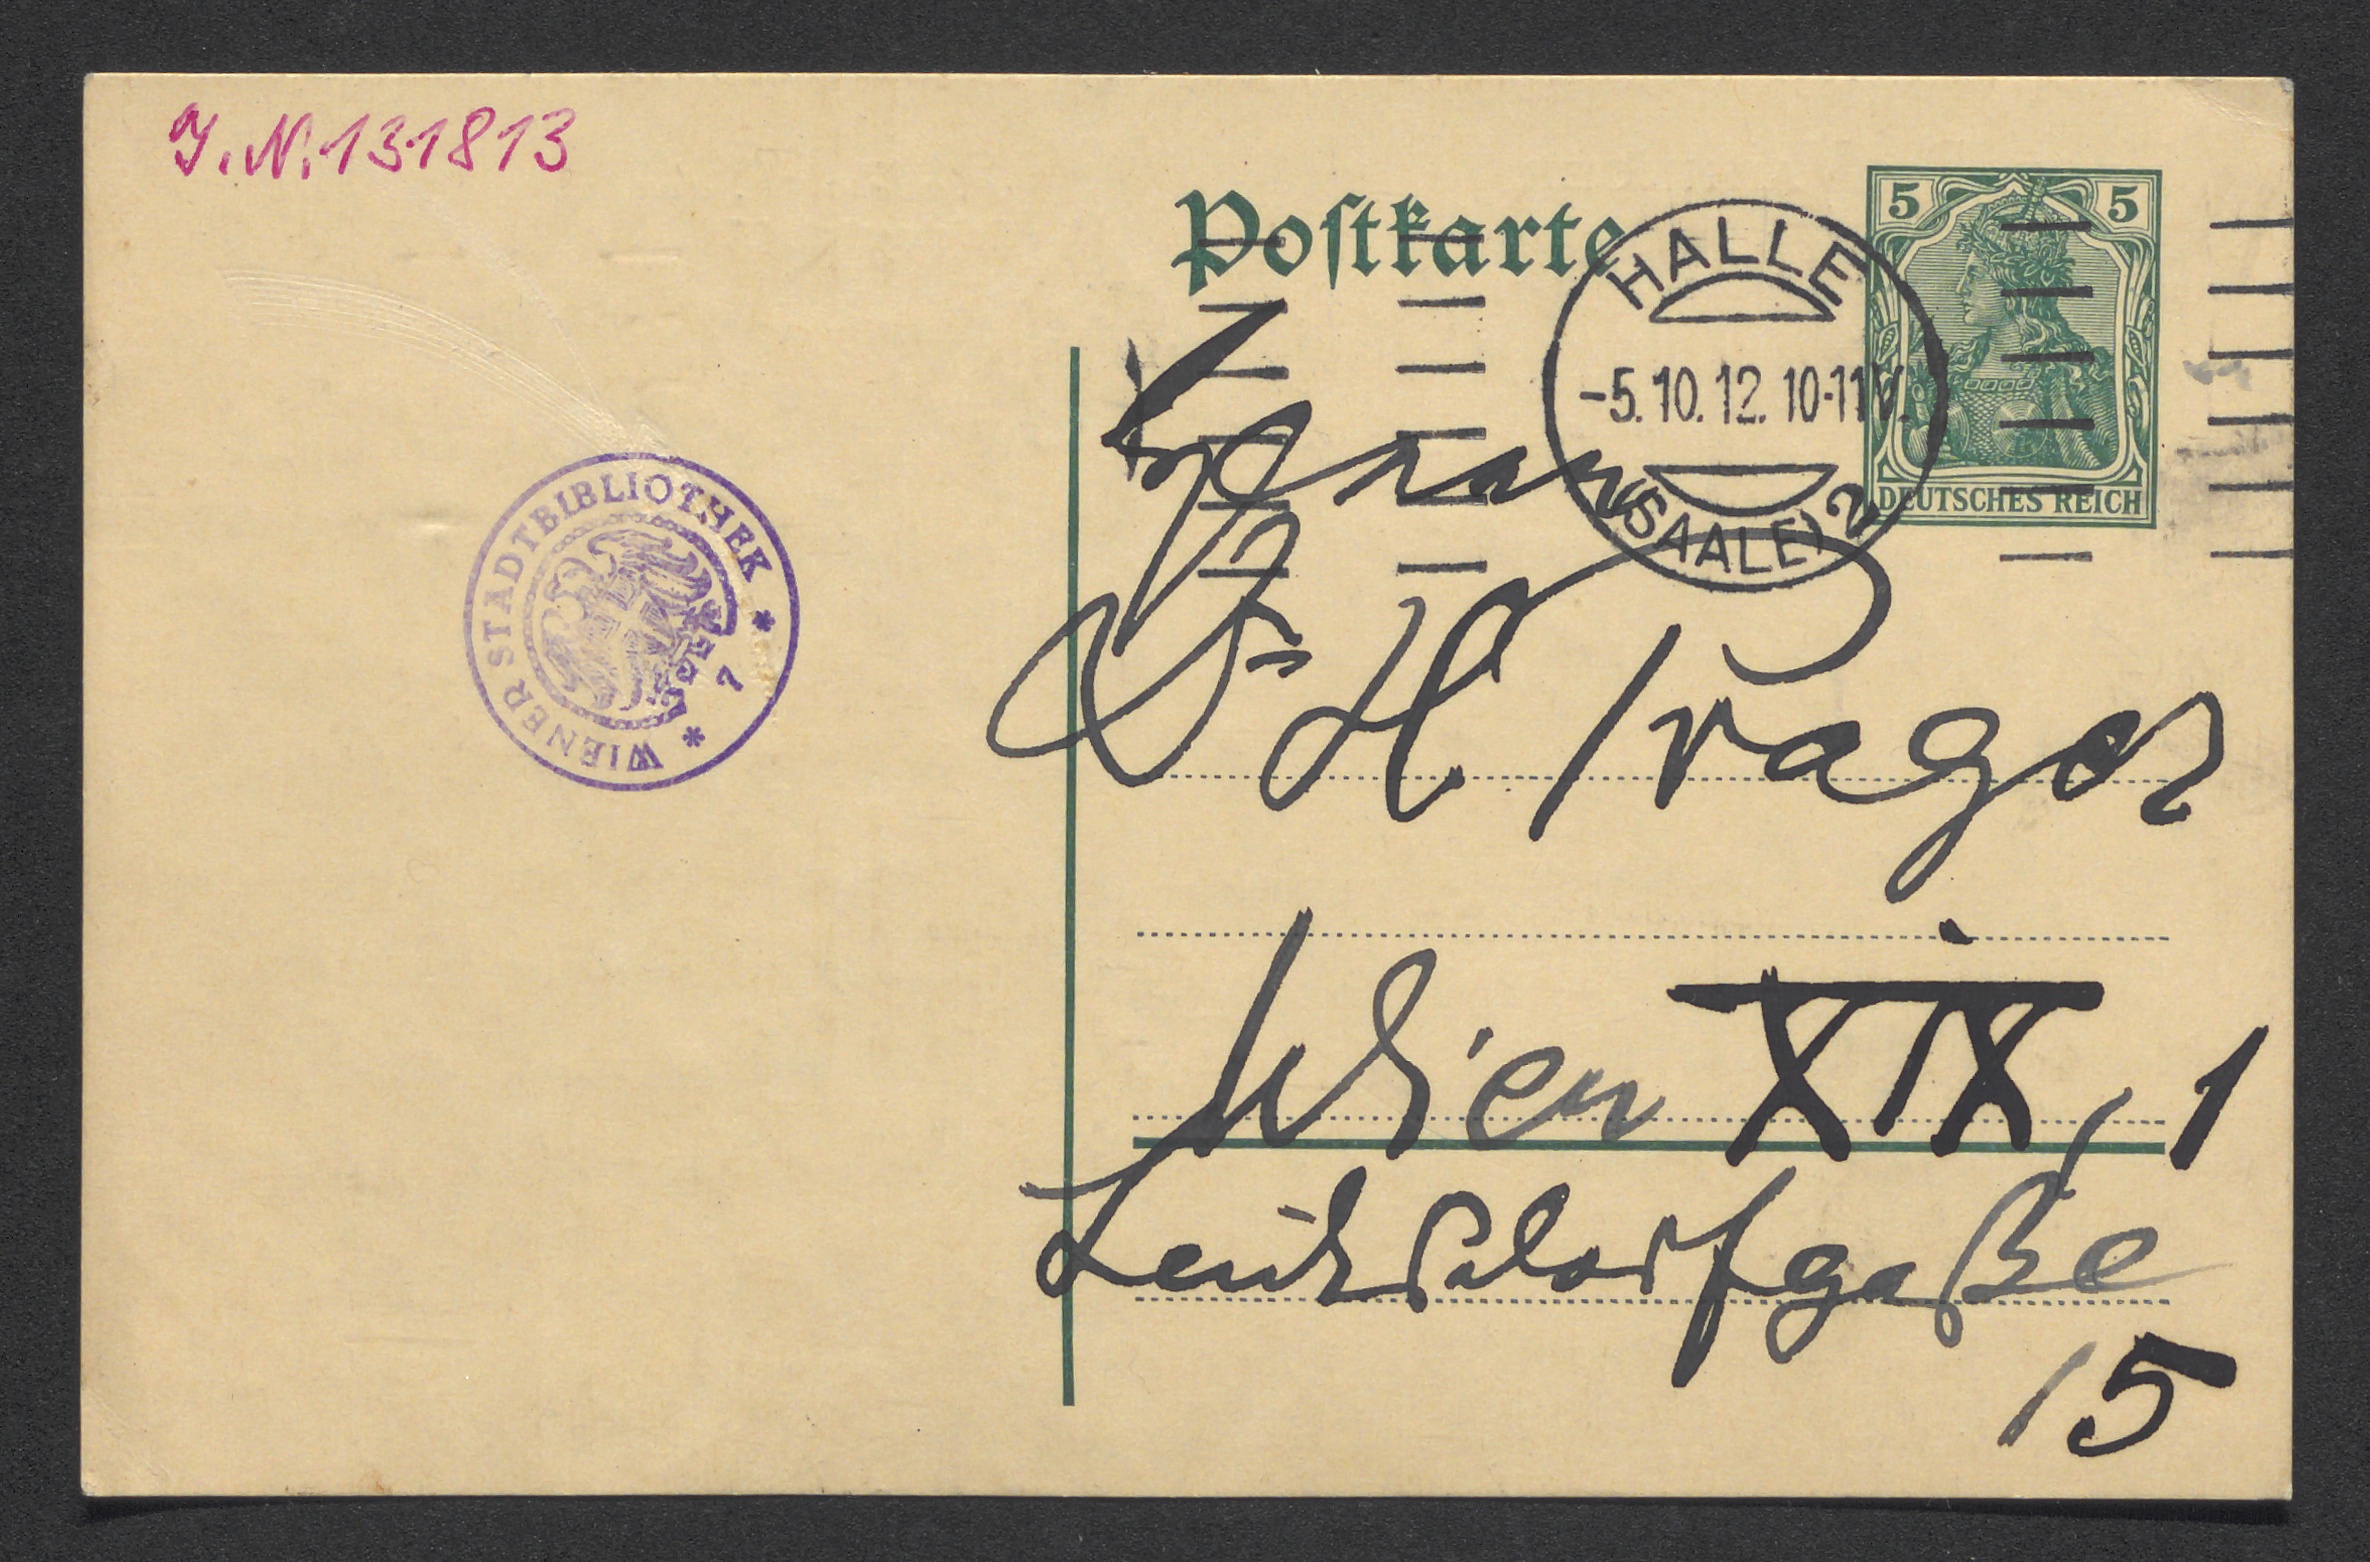 J. N. 131813
Postkarte
5 5
DEUTSCHES REICH
HALLE
-5.10.12. 10-11V.
(SAALE) 2
WIENER STADTBIBLIOTHEK * 7 *
Herrn
Dr H Prager
Wien XIX, 1
gaße
15